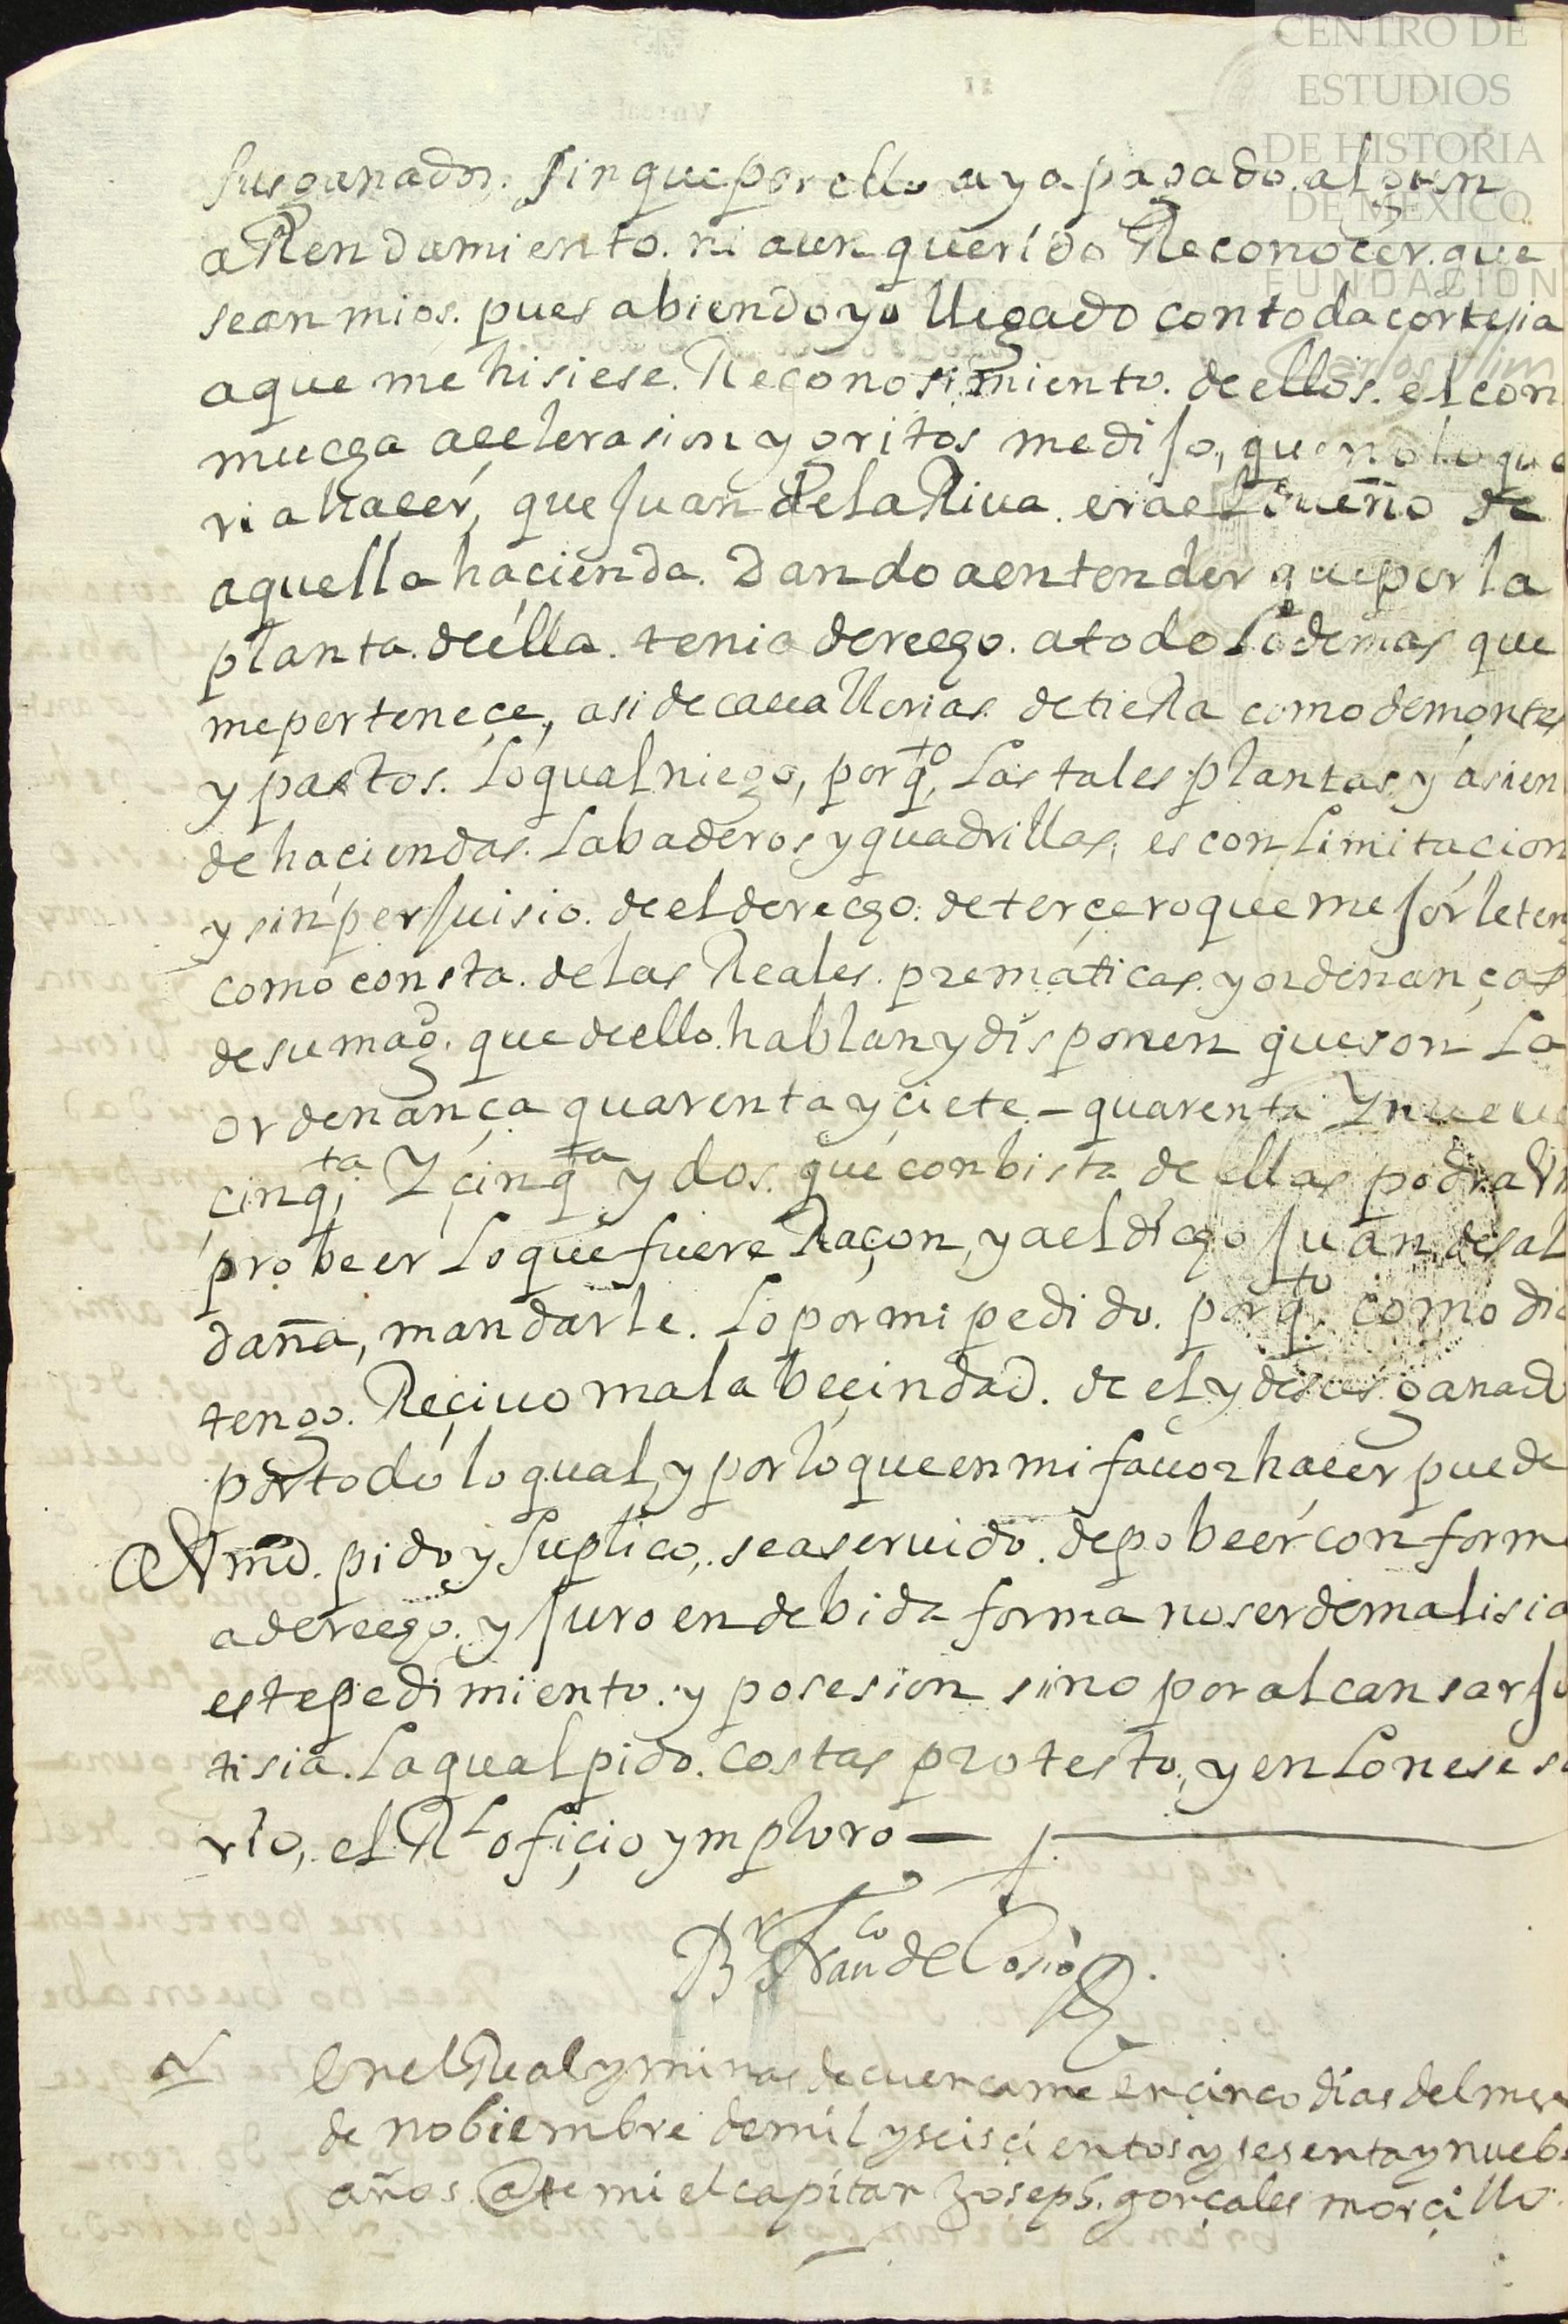 CENTRO DE
ESTUDIOS
DE HISTORIA
DE MÉXICO
FUNDACIÓN
Carlos Slim
sus ganados. sin que por ello aya pagado algun
aRendamiento. ni aun querido Reconocer. que
sean mios. pues abiendo yo llegado con toda cortesia
a que me hisiese. Reconosimiento. de ellos. el con
mucha acelerasion y gritos me dijo, que no lo que
ria hacer, que Juan de la Riva. era el dueño de
aquella hacienda. Dando a entender que por la
planta. de ella. tenia derecho. a todo lo demas que
me perteneçe, asi de cavallerias de tieRa como de montes
y pastos. Lo qual niego, porq.to Las tales plantas y asien
de haciendas. Labaderos y quadrillas, es con Limitacion
y sin perjuisio. de el derecho. de terçero que mejor le ten
como consta. de las Reales. prematicas. y ordenanças
de su mag.d que de ello. hablan y disponen que son La
ordenança quarenta y çiete - quarenta Y nueve
çinq.ta Y çinq.ta y dos. que con bista de ellas podra Vm
probeer Lo que fuere Raçon, y a el dicho Juan de sal
daña, mandarle. Lo por mi pedido. porq.to como dic
tengo. Reçivo mala beçindad. de el y de sus ganado
por todo lo qual, y por lo que en mi favor hacer puede
A Vmd. pido y suplico, sea servido. de pobeer conforme
a derecho. y Juro en debida forma no ser de malisia
este pedimiento. y posesion sino por alcansar Ju
tisia. La qual pido. costas protesto, y en Lo nesesa
rio, el R.l ofiçio ymploro —
B.r Fran.co de Cosio
En el Real y minas de cuencame en çinco dias del mes
de nobiembre de mil y seisçientos y sesenta y nuebe
años. ante mi el capitan Joseph. gonçales morçillo.